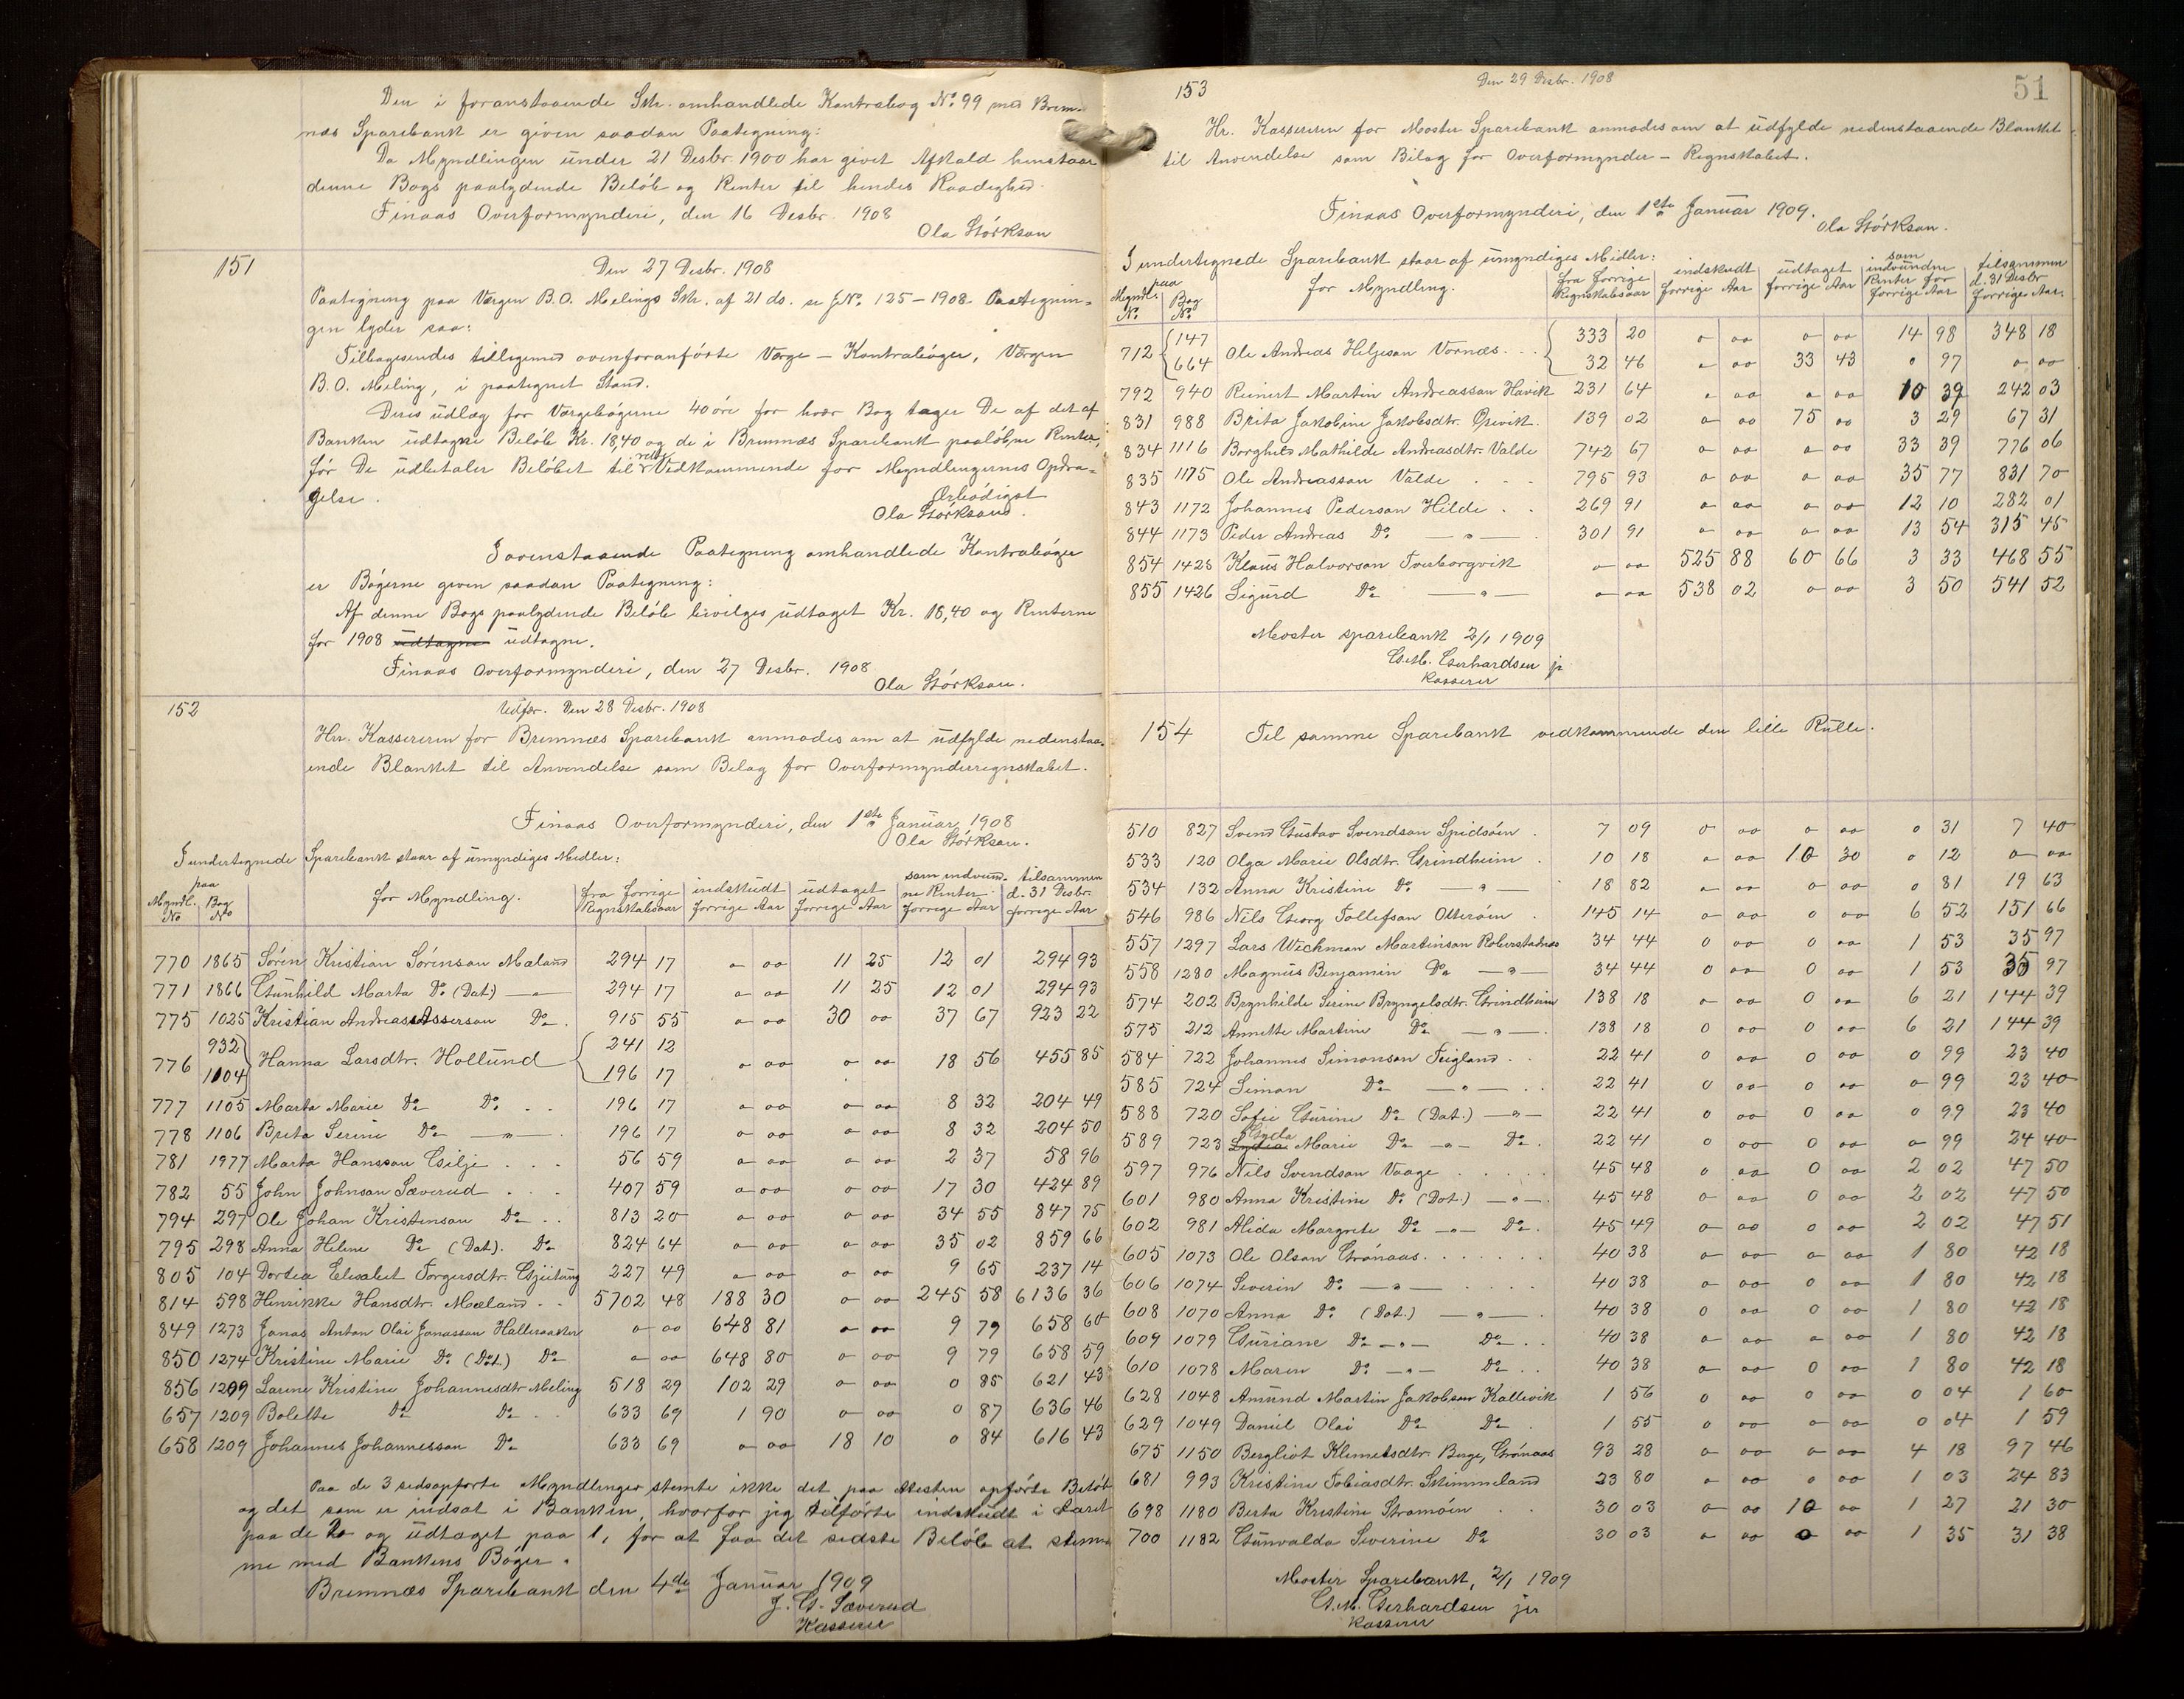 Den i foranstaaende Skr. omhandlede Kontrabog No. 99 med Brem-
næs Sparebank er given saadan Paategning:
Da Myndlingen under 21 Desbr. 1900 har givet Afkald henstaar
denne Bogs paalydende Beløb og Renter til hendes Raadighed.
Finaas Overformynderi, den 16 Desbr. 1908
Ola Størkson
151
Den 27 Desbr. 1908
Paategning paa Værgen B.O. Melings Skr. af 21 ds. se J.No. 125-1908. Paategnin-
gen lyder saa:
Tilbagesendes tilligemed ovenforanførte Værge-Kontrabøger, Værgen
B.O. Meling, i paategnet Stand.
Deres udlæg for Værgebøgerne 40 øre for hver Bog tager De af det af
Banken udtagne Beløb Kr. 18,40 og de i Bremnæs Sparebank paaløbne Renter,
før De udbetaler Beløbet til rette Vedkommende for Myndlingernes Opdra-
gelse.
Ærbødigst
Ola Størkson.
I ovenstaaende Paategning omhandlede Kontrabøger
er Bøgerne given saadan Paategning:
Af denne Bogs paalydende Beløb bevilges udtaget Kr. 18,40 og Renterne
for 1908 udtagne udtagne.
Finaas Overformynderi, den 27 Desbr. 1908
Ola Størkson.
152
Udfær. Den 28 Desbr. 1908
Hr. Kassereren for Bremnæs Sparebank anmodes om at udfylde nedenstaa-
ende Blanket til Anvendelse som Bilag for Overformynderregnskabet.
Finaas Overformynderi, den 1ste Januar 1908
Ola Størkson.
I undertegnede Sparebank staar af umyndiges Midler:
paa
Myndl. No Bog No for Myndling. fra forrige Regnskabsaar indskudt forrige Aar udtaget forrige Aar som indvund- ne Renter forrige Aar tilsammen d. 31 Desbr. forrige Aar
770 1865 Søren Kristian Sørenson Mæland 294 17 o oo 11 25 12 01 294 93
771 1866 Gunhild Marta Do (Dat.) — 294 17 o oo 11 25 12 01 294 93
775 1025 Kristian Andreas Asserson Do. 915 55 o oo 30 oo 37 67 923 22
932 241 12
776 Hanna Larsdtr. Hollund o oo o oo 18 56 455 85
1104 196 17
777 1105 Marta Marie Do Do. . . 196 17 o oo o oo 8 32 204 49
778 1106 Brita Serine Do —"— . 196 17 o oo o oo 8 32 204 50
781 1977 Marta Hansson Gilje . . . 56 59 o oo o oo 2 37 58 96
782 55 John Johnson Sæverud . . . 407 59 o oo o oo 17 30 424 89
794 297 Ole Johan Kristenson Do . . 813 20 o oo o oo 34 55 847 75
795 298 Anna Helene Do (Dat). Do 824 64 o oo o oo 35 02 859 66
805 104 Dortea Elisabet Torgersdtr. Gjeitung 227 49 o oo o oo 9 65 237 14
814 598 Henrikke Hansdtr. Mæland . . 5702 48 188 30 o oo 245 58 6136 36
849 1273 Jonas Anton Olai Jonasson Halleraaker o oo 648 81 o oo 9 79 658 60
850 1274 Kristine Marie Do (Dat.) Do o oo 648 80 o oo 9 79 658 59
856 1209 Larine Kristine Johannesdtr. Meling 518 29 102 29 o oo 0 85 621 43
657 1209 Bolette Do Do . . 633 69 1 90 o oo 0 87 636 46
658 1209 Johannes Johannesson Do 633 69 o oo 18 10 0 84 616 43
Paa de 3 sidsopførte Myndlinger stemte ikke det paa Attesten opførte Beløb
og det som er indsat i Banken, hvorfor jeg tilførte indskudt i Aaret
paa de to og udtaget paa 1, for at faa det sidste Beløb at stem-
me med Bankens Bøger.
Bremnæs Sparebank den 4de Januar 1909
J. G. Sæverud
Kasserer
51
153
Den 29 Desbr. 1908
Hr. Kassereren for Moster Sparebank anmodes om at udfylde nedenstaaende Blanket
til Anvendelse som Bilag for Overformynder-Regnskabet.
Finaas Overformynderi, den 1ste Januar 1909.
Ola Størkson.
I undertegnede Sparebank staar af umyndiges Midler:
paa
Myndl. No. Bog No. for Myndling. fra forrige Regnskabsaar indskudt forrige Aar udtaget forrige Aar som indvundne Renter for forrige Aar tilsammen d. 31 Desbr forrige Aar.
147 333 20 o oo o oo 14 98 348 18
712 Ole Andreas Helgeson Vornæs. . .
664 32 46 o oo 33 43 o 97 o oo
792 940 Reinert Martin Andreasson Havik 231 64 o oo o oo 10 39 242 03
831 988 Brita Jakobine Jakobsdtr. Økivik. 139 02 o oo 75 oo 3 29 67 31
834 1116 Borghild Mathilde Andreasdtr. Valde 742 67 o oo o oo 33 39 776 06
835 1175 Ole Andreasson Valde . . . 795 93 o oo o oo 35 77 831 70
843 1172 Johannes Pederson Hilde . . 269 91 o oo o oo 12 10 282 01
844 1173 Peder Andreas Do —"— . 301 91 o oo o oo 13 54 315 45
854 1425 Klaus Halvorson Tverborgvik o oo 525 88 60 66 3 33 468 55
855 1426 Sigurd Do —"— o oo 538 02 o oo 3 50 541 52
Moster sparebank 2/1 1909
G.M. Gerhardsen jr
Kasserer
154
Til samme Sparebank vedkommende den lille Rulle.
510 827 Svend Gustav Svendson Spidsøen . 7 09 0 oo o oo o 31 7 40
533 120 Olga Marie Olsdtr. Grindheim . 10 18 o oo 10 30 o 12 o oo
534 132 Anna Kristine Do —"— 18 82 o oo o oo o 81 19 63
546 986 Nils Georg Tollefson Otterøen . 145 14 o oo o oo 6 52 151 66
557 1297 Lars Wichman Martinson Roberstadnes 34 44 0 oo 0 oo 1 53 35 97
558 1280 Magnus Benjamin Do —"— 34 44 0 oo 0 oo 1 53 35 97
574 202 Brynhilde Serine Bryngelsdtr. Grindheim 138 18 o oo 0 oo 6 21 144 39
575 212 Annette Martine Do —"—. 138 18 0 oo 0 oo 6 21 144 39
584 722 Johannes Simonson Teigland . . 22 41 0 oo 0 oo 0 99 23 40
585 724 Simon Do —"— . . 22 41 0 oo 0 oo o 99 23 40
588 720 Sofie Gurine Do (Dat.) —"— 22 41 0 oo 0 oo o 99 23 40
589 723 Lydia Gyda Marie Do —"— Do . 22 41 0 oo 0 oo o 99 24 40
597 976 Nils Svendson Vaage . . . . . 45 48 o oo 0 oo 2 02 47 50
601 980 Anna Kristine Do (Dat.) —"—. 45 48 o oo 0 oo 2 02 47 50
602 981 Alida Margrete Do —"— Do. 45 49 o oo o oo 2 02 47 51
605 1073 Ole Olson Grønaas. . . . . . . 40 38 o oo o oo 1 80 42 18
606 1074 Severin Do —"— . . . . 40 38 o oo o oo 1 80 42 18
608 1070 Anna Do (Dat.) —"—. 40 38 0 oo 0 oo 1 80 42 18
609 1079 Guriane Do —"— Do . . 40 38 o oo o oo 1 80 42 18
610 1078 Maren Do —"— Do . . 40 38 o oo 0 oo 1 80 42 18
628 1048 Amund Martin Jakobson Kallevik 1 56 0 oo 0 oo 0 04 1 60
629 1049 Daniel Olai Do Do . 1 55 0 oo o oo 0 04 1 59
675 1150 Bergliot Klemetsdtr. Berge, Grønaas 93 28 o oo o oo 4 18 97 46
681 993 Kristine Tobiasdtr. Skimmeland 23 80 o oo o oo 1 03 24 83
698 1180 Berta Kristine Stramøen . 30 03 o oo 10 oo 1 27 21 30
700 1182 Gunvalda Severine Do 30 03 o oo o oo 1 35 31 38
Moster Sparebank, 2/1 1909
G.M. Gerhardsen jr
Kasserer